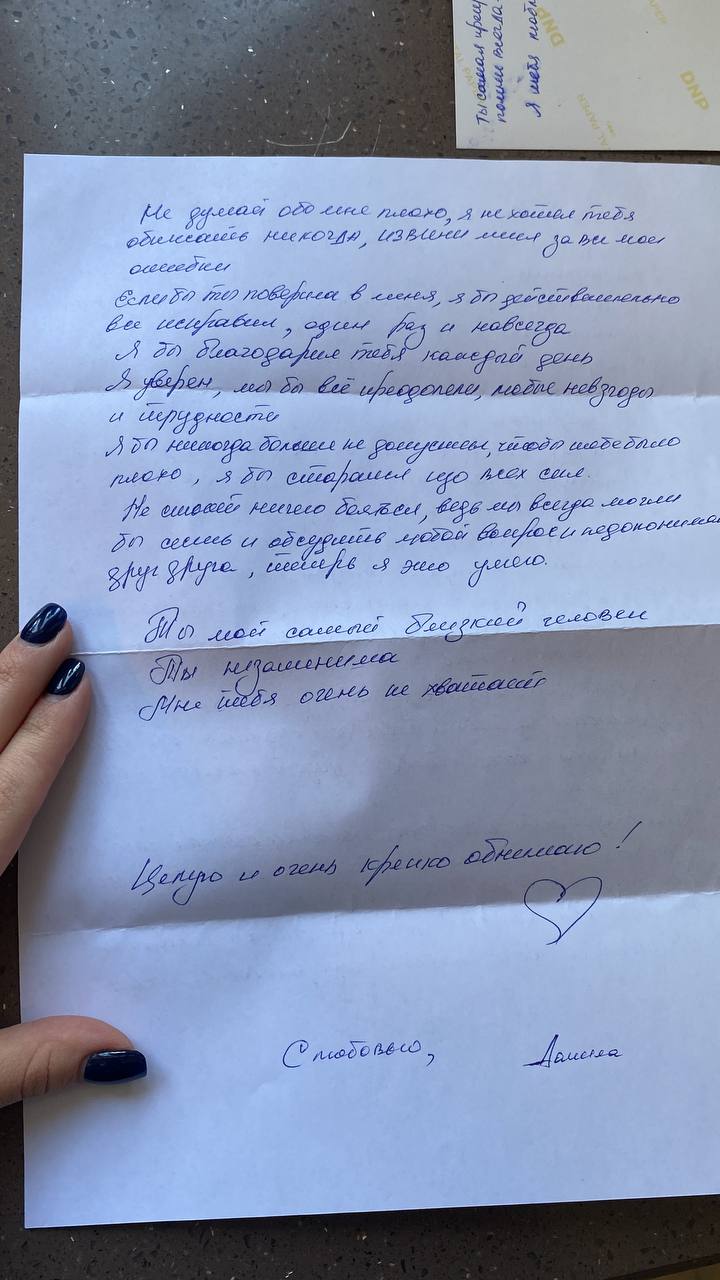 Ты самая
помни всегда
Я тебя
DNP
DNP
Не думай обо мне плохо, я не хотел тебя
обижать никогда, извини меня за все мои
ошибки
Если бы ты поверила в меня, я бы действительно
все исправил, один раз и навсегда
Я бы благодарил тебя каждый день
Я уверен, мы бы всё преодолели, любые невзгоды
и трудности
Я бы никогда больше не допустил, чтобы тебе было
плохо, я бы старался изо всех сил.
Не стоит ничего бояться, ведь мы всегда могли
бы сесть и обсудить любой вопрос и недопонимания
друг друга, теперь я это умею.
Ты мой самый близкий человек
Ты незаменима
Мне тебя очень не хватает
Целую и очень крепко обнимаю!
С любовью, Данила